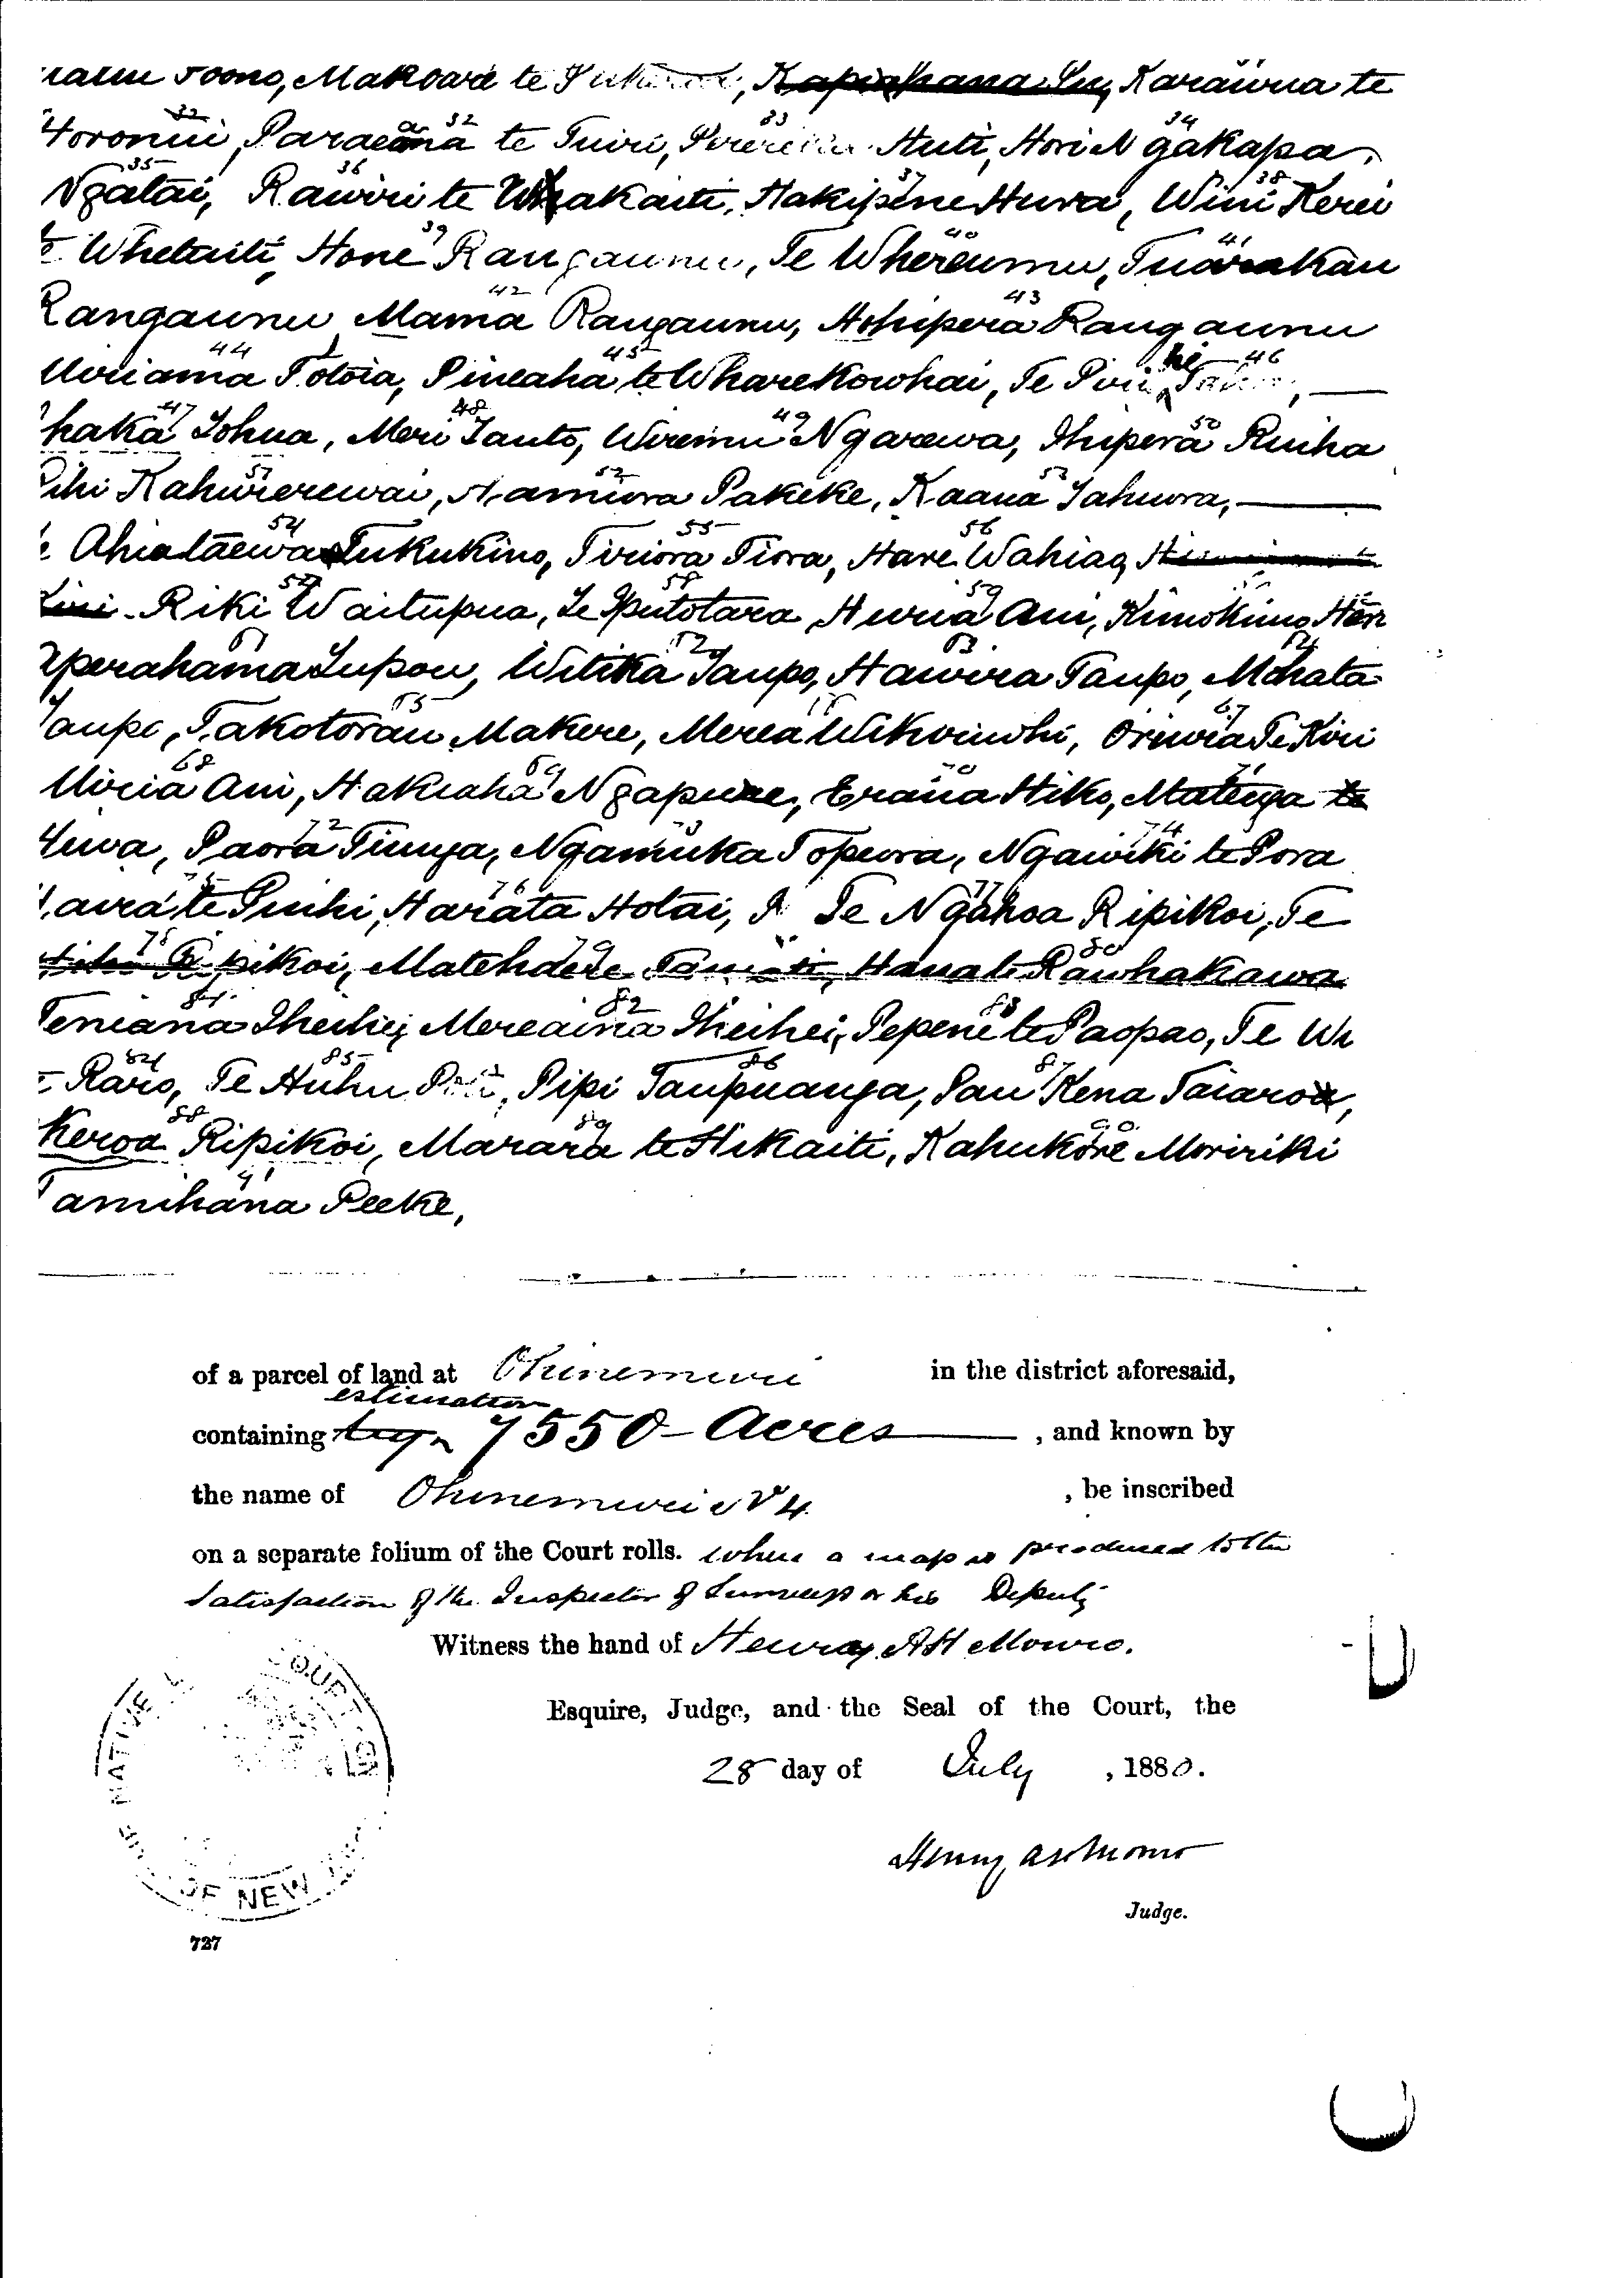 Toono, Makoare te Karauna te
32 32 33 34
Horonui, Paraeana te Tuiri, Huti, Hori Ngakapa,
35 36 37 38
Ngatai, Rawiri te Whakaiti, Hakipene Hura, Wini Kerei
39 40 41
te Whetuiti, Hone Rangaunu, Te Whereumu, Tuarakau
42 43
Rangaunu Mama Rangaunu, Hohipera Rangaunu
44 45 he 46
Miriama Totoia, Pineaha te Wharekowhai, Te Piri
47 48 49 50
haka Tohua, Meri Tauto, Wiremu Ngarewa, Ihipera Ruiha
51 52 53
Pihi Kahurerewai, Hamiora Pakeke, Kaana Tahuora,
54 55 56
Ahiataewa Tukukino, Tiriora Tiora, Hare Wahiao,
57 58 59
Riki Waitupua, Te Iputotara, Huria Ani, Kimokimo, Hera
61 62 63 64
Eperahama Tupou, Witika Taupo, Hawira Taupo, Mohata
65 67
Taupo, Takotorau Makere, Merea Wikiriwhi, Oriwia Te Kiri
68 69 70 71
Miria Ani, Hakiaha Ngapure, Erana Hiko, Matenga te
72 73 74
Huva, Paora Tiunga, Ngamuka Topeora, Ngawiki te Pora
75 76 77
te Puihi, Harata Hotai, Te Ngahoa Ripikoi, Te
78 79 80
Ripikoi, Matehaere Hana te Rawhakawa
81 82 83
Teniana Iheihei, Mereaina Iheihei, Pepene te Paopao, Te Wi
84 85 86 87
Raro, Te Huhu Pipi Taupuanga, Pau Kena Taiaroa,
88 89 90
Keroa Ripikoi, Marara te Hikaiti, Kahukore Moririki
91
Tamihana Peeke,
of a parcel of land at Ohinemuri in the district aforesaid,
estimation
containing by 7550 Acres , and known by
the name of Ohinemuri No 4 , be inscribed
on a separate folium of the Court rolls. when a map is produced to the
satisfaction of the Inspector of Surveys or his Deputy
Witness the hand of Henry A H Monro.
Esquire, Judge, and the Seal of the Court, the
28 day of July , 1880.
Henry A H Monro
Judge.
NATIVE COURT OF NEW
727